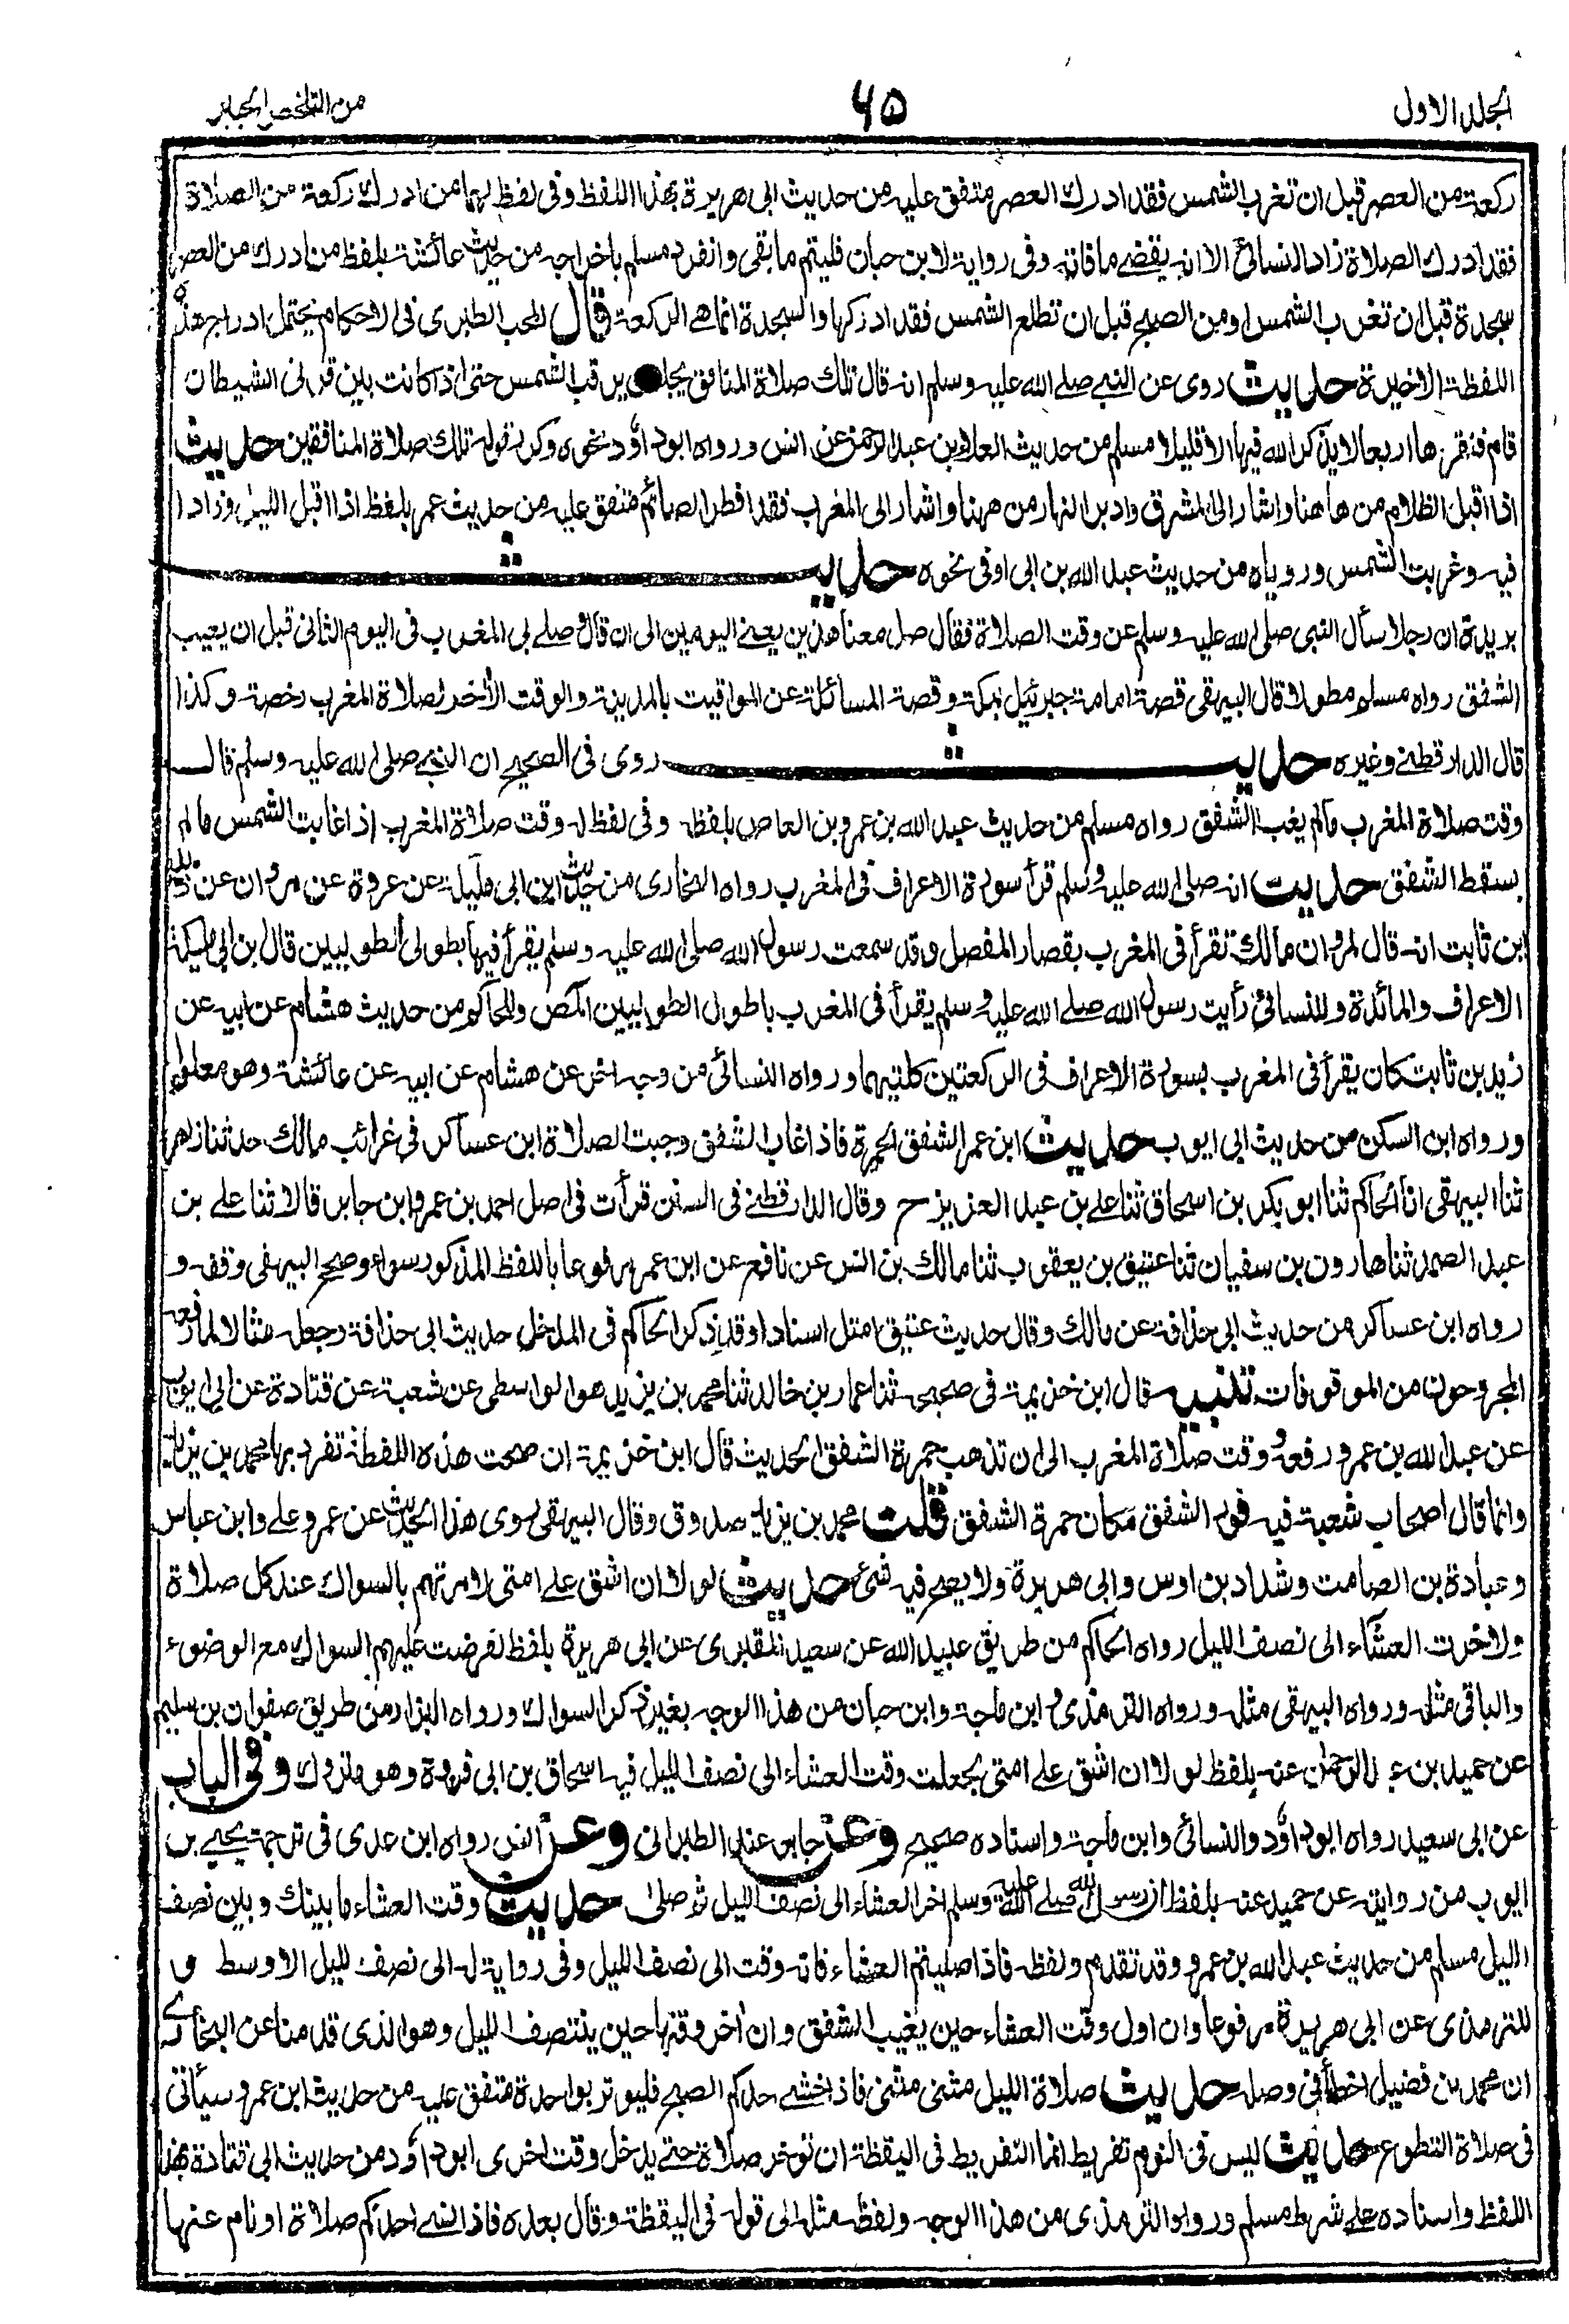 الجلد الاول
٦٥
من التلخيص الحبير
ركعة من العصر قبل ان تغرب الشمس فقد ادرك العصر متفق عليه من حديث ابى هريرة بهذا اللفظ وفى لفظ لهما من ادرك ركعة من الصلاة
فقد ادرك الصلاة زاد النسائى الا انه يقضى ما فاته وفى رواية لابن حبان فليتم ما بقى وانفرد مسلم باخراجه من حديث عائشة بلفظ من ادرك من العصر
سجدة قبل ان تغرب الشمس او من الصبح قبل ان تطلع الشمس فقد ادركها والسجدة انما هى الركعة قال المحب الطبرى فى الاحكام يحتمل ادراج هذه
اللفظة الاخيرة حديث روى عن النبى صلى الله عليه وسلم انه قال تلك صلاة المنافق يجلس يرقب الشمس حتى اذا كانت بين قرنى الشيطان
قام فنقرها اربعا لا يذكر الله فيها الا قليلا مسلم من حديث العلاء بن عبد الرحمن عن انس ورواه ابو داؤد نحوه وكرر قوله تلك صلاة المنافقين حديث
اذا اقبل الظلام من هاهنا واشار الى المشرق وادبر النهار من ههنا واشار الى المغرب فقد افطر الصائم متفق عليه من حديث عمر بلفظ اذا اقبل الليل وزادا
فيه وغربت الشمس وروياه من حديث عبد الله بن ابى اوفى نحوه حديث
بريدة ان رجلا سأل النبى صلى الله عليه وسلم عن وقت الصلاة فقال صل معنا هذين يعنى اليومين الى ان قال وصلى بى المغرب فى اليوم الثانى قبل ان يغيب
الشفق رواه مسلم مطولا قال البيهقى قصة امامة جبرئيل بمكة وقصة المسائلة عن المواقيت بالمدينة والوقت الأخر لصلاة المغرب رخصة وكذا
قال الدارقطنى وغيره حديث روى فى الصحيح ان النبى صلى الله عليه وسلم قال
وقت صلاة المغرب مالم يغب الشفق رواه مسلم من حديث عبد الله بن عمرو بن العاص بلفظه وفى لفظ له وقت صلاة المغرب اذا غابت الشمس مالم
يسقط الشفق حديث انه صلى الله عليه وسلم قرأ سورة الاعراف فى المغرب رواه البخارى من حديث ابن ابى مليكة عن عروة عن مروان عن زيد
ابن ثابت انه قال لمروان مالك تقرأ فى المغرب بقصار المفصل وقد سمعت رسول الله صلى الله عليه وسلم يقرأ فيها بطولى الطوليين قال ابن ابى مليكة
الاعراف والمائدة وللنسائى رأيت رسول الله صلى الله عليه وسلم يقرأ فى المغرب باطول الطوليين المص وللحاكم من حديث هشام عن ابيه عن
زيد بن ثابت كان يقرأ فى المغرب بسورة الاعراف فى الركعتين كلتيهما ورواه النسائى من وجه اخر عن هشام عن ابيه عن عائشة وهو معلول
ورواه ابن السكن من حديث ابى ايوب حديث ابن عمر الشفق الحمرة فاذا غاب الشفق وجبت الصلاة ابن عساكر فى غرائب مالك حدثنا زاهر
ثنا البيهقى انا الحاكم ثنا ابو بكر بن اسحاق ثنا على بن عبد العزيز ح وقال الدارقطنى فى السنن قرأت فى اصل احمد بن عمرو ابن جابر قالا ثنا على بن
عبد الصمد ثنا هارون بن سفيان ثنا عتيق بن يعقوب ثنا مالك بن انس عن نافع عن ابن عمر مرفوعا باللفظ المذكور سواء وصحح البيهقى وقفه و
رواه ابن عساكر من حديث ابى حذافة عن مالك وقال حديث عتيق امثل اسنادا وقد ذكر الحاكم فى المدخل حديث ابى حذافة وجعله مثالا لما رفعه
المجروحون من الموقوفات تنبيه قال ابن خزيمة فى صحيحه ثنا عمار بن خالد ثنا محمد بن يزيد هو الواسطى عن شعبة عن قتادة عن ابى ايوب
عن عبد الله بن عمرو رفعه وقت صلاة المغرب الى ان تذهب حمرة الشفق الحديث قال ابن خزيمة ان صحت هذه اللفظة تفرد بها محمد بن يزيد
وانما قال اصحاب شعبة فيه فور الشفق مكان حمرة الشفق قلت محمد بن يزيد صدوق وقال البيهقى روى هذا الحديث عن عمر وعلى وابن عباس
وعبادة بن الصامت وشداد بن اوس وابى هريرة ولا يصح فيه شئ حديث لولا ان اشق على امتى لامرتهم بالسواك عند كل صلاة
ولاخرت العشاء الى نصف الليل رواه الحاكم من طريق عبيد الله عن سعيد المقبرى عن ابى هريرة بلفظ لفرضت عليهم السواك مع الوضوء
والباقى مثله ورواه البيهقى مثله ورواه الترمذى وابن ماجة وابن حبان من هذا الوجه بغير ذكر السواك ورواه البزار من طريق صفوان بن سليم
عن حميد بن عبد الرحمان عنه بلفظ لولا ان اشق على امتى لجعلت وقت العشاء الى نصف الليل فيه اسحاق بن ابى فروة وهو متروك وفى الباب
عن ابى سعيد رواه ابو داؤد والنسائى وابن ماجة واسناده صحيح وعن جابر عند الطبرانى وعن انس رواه ابن عدى فى ترجمة يحيى بن
ايوب من روايته عن حميد عنه بلفظ ان رسول الله صلى الله عليه وسلم اخر العشاء الى نصف الليل ثم صلى حديث وقت العشاء ما بينك وبين نصف
الليل مسلم من حديث عبد الله بن عمرو وقد تقدم ولفظه فاذا صليتم العشاء فانه وقت الى نصف الليل وفى رواية له الى نصف الليل الاوسط و
للترمذى عن ابى هريرة مرفوعا وان اول وقت العشاء حين يغيب الشفق وان أخر وقتها حين ينتصف الليل وهو الذى قدمنا عن البخارى
ان محمد بن فضيل اخطأ فى وصله حديث صلاة الليل مثنى مثنى فاذا خشى احدكم الصبح فليوتر بواحدة متفق عليه من حديث ابن عمر وسيأتى
فى صلاة التطوع حديث ليس فى النوم تفريط انما التفريط فى اليقظة ان توخر صلاة حتى يدخل وقت اخرى ابو داؤد من حديث ابى قتادة بهذا
اللفظ واسناده على شرط مسلم ورواه الترمذى من هذا الوجه ولفظه مثله الى قوله فى اليقظة وقال بعده فاذا نسى احدكم صلاة او نام عنها